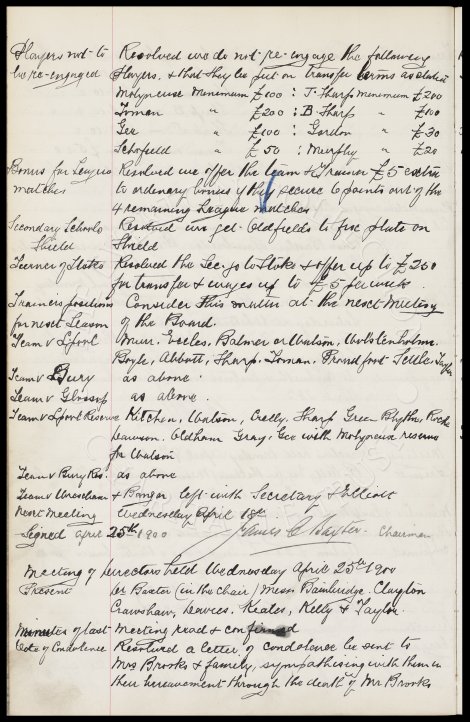 Players not to Resolved we do not re-engage the following
be re-engaged Players, & that they be put on transfer terms as stated
Molyneux Minimum £100 : J. Sharp minimum £200
Toman " £200 : B Sharp " £100
Gee " £100 : Gordon " £30
Schofield " £50 : Murphy " £20
Bonus for League Resolved we offer the team & Trainer £5 extra
matches to ordinary bonuses if they secure 6 points out of the
4 remaining League matches
Secondary Schools Resolved we get Oldfields to fix plate on
Shield Shield
Turner of Stoke Resolved the Sec. go to Stoke & offer up to £250
for transfer & wages up to £5 per week.
Trainers position Consider this matter at the next Meeting
for next Season of the Board.
Team v L'pool Muir, Eccles, Balmer or Watson, Wolstenholme.
Boyle, Abbott, Sharp. Toman. Proudfoot Settle. Taylor
Team v Bury as above.
Team v Glossop as above.
Team v L'pool Reserve Kitchen, Watson, Crelly. Sharp Green Blythe, Roche
Dawson. Oldham Gray. Gee with Molyneux reserve
for Watson
Team v Bury Res. as above
Team v Wrexham & Bangor left with Secretary & Elliott
Next Meeting Wednesday April 18th.
Signed April 25th 1900 James C Baxter Chairman
Meeting of Directors held Wednesday April 25th 1900
Present Dr Baxter (in the chair) Messrs Bainbridge. Clayton
Crawshaw, Davies. Keates, Kelly & Taylor.
Minutes of last Meeting read & confirmed
Vote of Condolence Resolved a letter of condolence be sent to
Mrs Brooks & family, sympathising with them in
their bereavement through the death of Mr Brooks